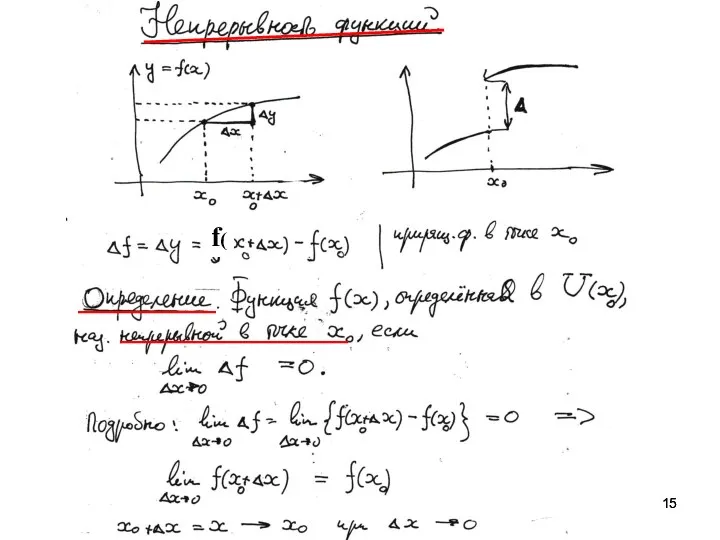 Непрерывность функций
y = f(x)
Δy
Δx
Δ
x₀ x₀+Δx
x₀
Δf = Δy = f(x₀+Δx) - f(x₀) | приращ. ф. в точке x₀
Определение. Функция f(x), определённая в U(x₀),
наз. непрерывной в точке x₀, если
lim Δf = 0.
Δx→0
Подробно: lim Δf = lim {f(x₀+Δx) - f(x₀)} = 0 =>
Δx→0 Δx→0
lim f(x₀+Δx) = f(x₀)
Δx→0
x₀+Δx = x → x₀ при Δx → 0
15